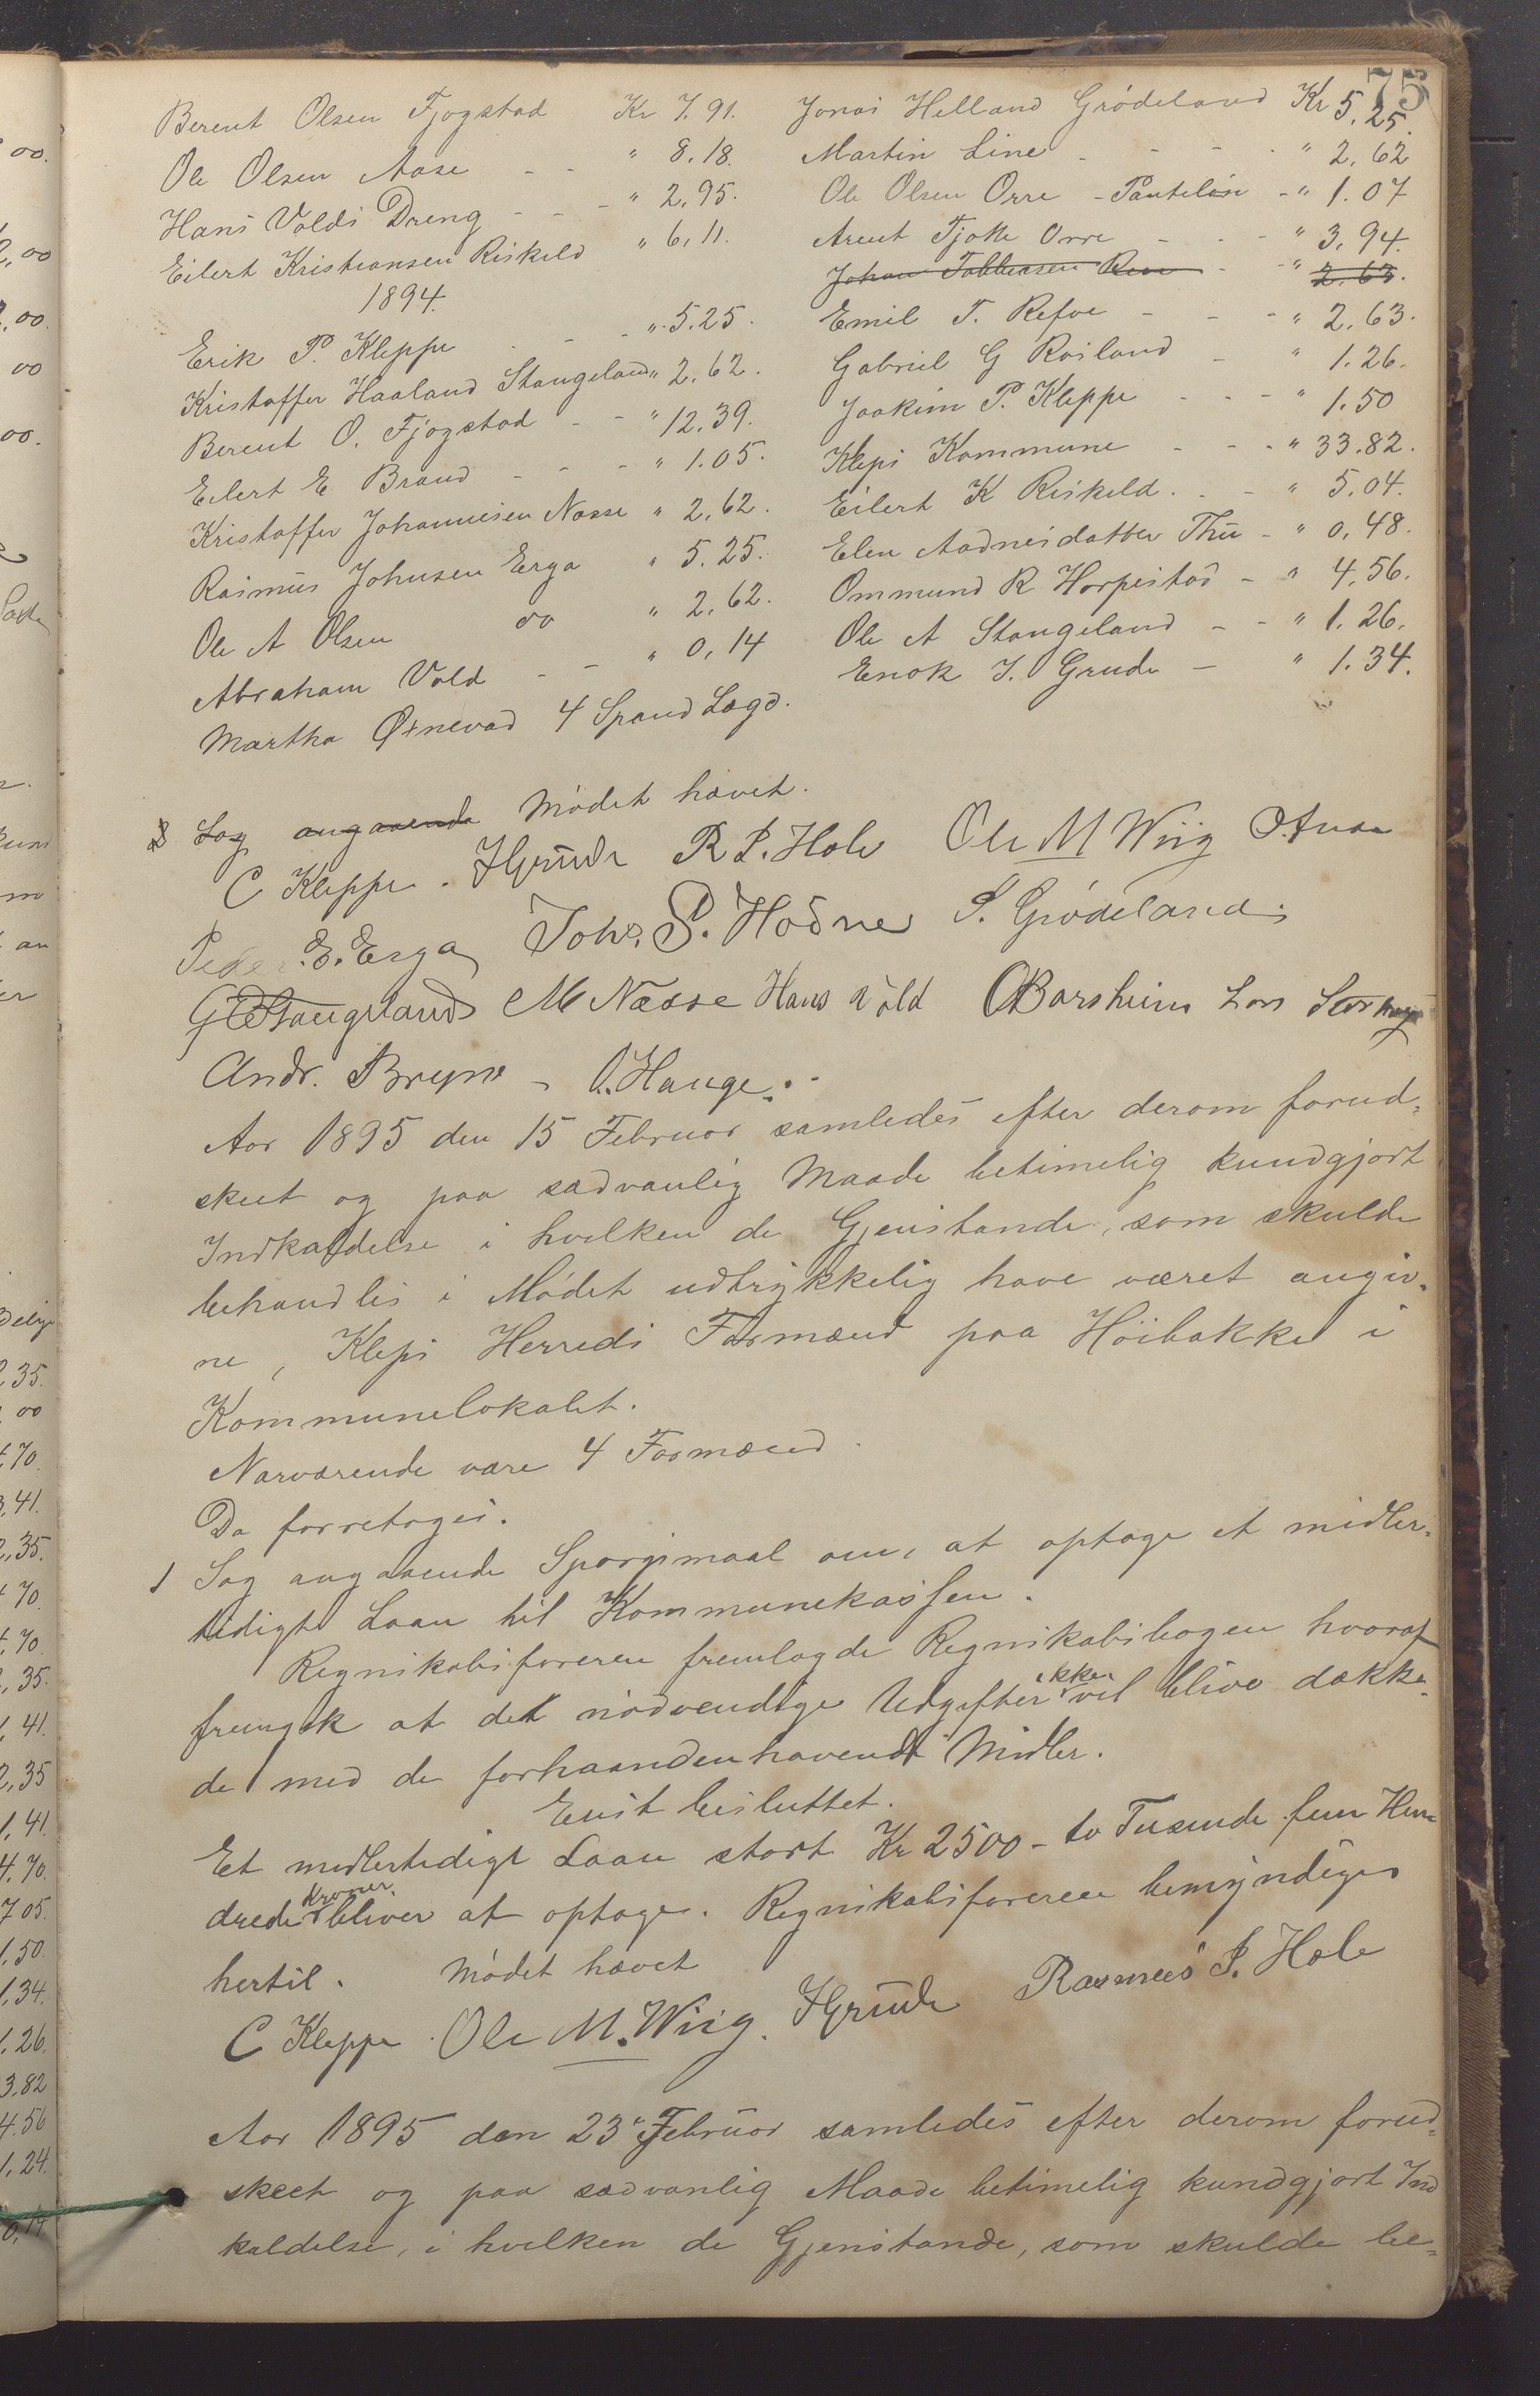 75
Berent Olsen Fjogstad Kr 7.91.
Ole Olsen Aase - - " 8,18.
Hans Volds Dreng - - - " 2,95.
Eilert Kristiansen Riskeld " 6,11.
1894.
Erik P. Kleppe - - - " 5.25.
Kristoffer Haaland Stangeland " 2,62.
Berent O. Fjogstad - - " 12,39.
Eilert E Braud - - - " 1.05.
Kristoffer Johannesen Næsse " 2,62.
Rasmus Johnsen Erga " 5.25.
Ole A Olsen do " 2,62.
Abraham Vold - - " 0,14
Martha Øxnevad 4 Spand Lægd.
Jonas Helland Grödeland Kr 5,25.
Martin Line - - - - " 2,62
Ole Olsen Orre - Panteløse - " 1.07
Arent Tjøtte Orre - - - " 3,94.
Johan Tobbiasen Reve - - " 2.63.
Emil T. Refve - - - " 2,63.
Gabriel G Roiland - " 1.26.
Joakim P. Kleppe - - - " 1.50
Kleps Kommune - - - " 33.82.
Eilert K Riskeld. - - " 5,04.
Elen Aadnesdatter Thu - " 0,48.
Ommund R Horpestad - " 4,56.
Ole A Stangeland - - " 1.26.
Enok J. Grude - " 1.34.
Sag angaaende Mødet hævet.
C Kleppe. JGrude R S. Hole Ole M Wiig
Peder E. Erga Johs. S. Hodne S. Grødeland
G Stangeland M Næsse Hans Vold O Borsheim Lars
Andr. Bryne - O. Hauge.
Aar 1895 den 15 Februar samledes efter derom forud-
skeet og paa sædvanlig Maade betimelig kundgjort
Indkaldelse i hvilken de Gjenstande, som skulde
behandles i Mødet udtrykkelig have været angiv-
ne, Kleps Herreds Formænd paa Höibakke i
Kommunelokalet.
Nærværende vare 4 Formænd.
Da forretoges.
1 Sag angaaende Spørgsmaal om, at optage et midler-
tidigt Laan til Kommunekassen.
Regnskabsføreren fremlagde Regnskabsbogen hvoraf
fremgik at det nødvendige Udgifter ikke vil blive dække-
de med de forhaandenhavende Midler.
Enst besluttet.
Et midlertidigt Laan stort Kr 2500 - to Tusende fem Hun
drede kroner bliver at optage. Regnskabsføreren bemyndiges
hertil. Mødet hævet
C Kleppe. Ole M. Wiig. JGrude Rasmus S. Hole
Aar 1895 den 23de Februar samledes efter derom forud-
skeet og paa sædvanlig Maade betimelig kundgjort Ind
kaldelse, i hvilken de Gjenstande, som skulde be-